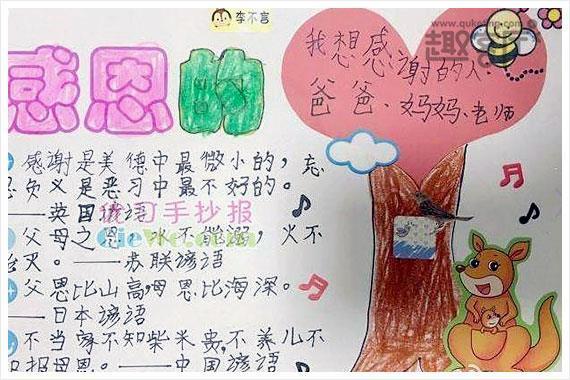 李不言
www.quketing.com
感恩的
我想感谢的人:
爸爸、妈妈、老师
感谢是美德中最微小的，忘
恩负义是恶习中最不好的。
——英国谚语
手抄报
父母之恩，水不能溺，火不
能灭。——苏联谚语
父恩比山高，母恩比海深。
——日本谚语
不当家不知柴米贵，不养儿不
知报母恩。——中国谚语